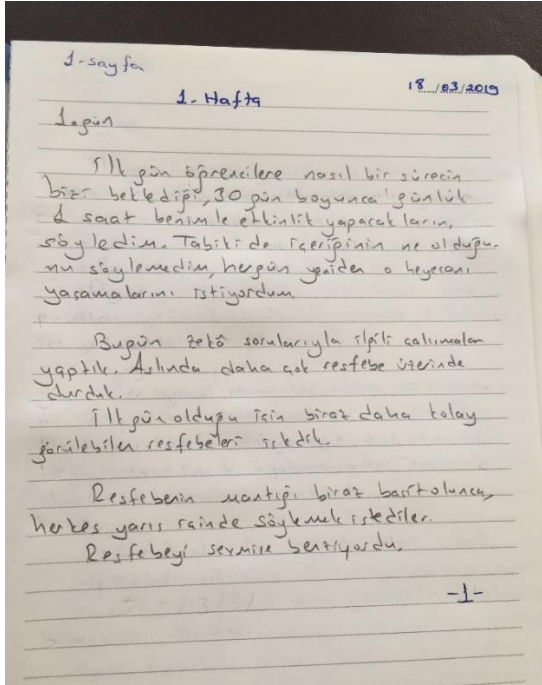 1-sayfa
18/03/2019
1. Hafta
1.gün
İlk gün öğrencilere nasıl bir sürecin
bizi beklediği, 30 gün boyunca günlük
1 saat benimle etkinlik yapacakların,
söyledim. Tabiki de içeriğinin ne olduğu-
nu söylemedim, hergün yeniden o heyecanı
yaşamalarını istiyordum.
Bugün zekâ sorularıyla ilgili çalışmalar
yaptık. Aslında daha çok resfebe üzerinde
durduk.
İlk gün olduğu için biraz daha kolay
görülebilen resfebeleri
Resfebenin mantığı biraz basit olunca,
herkes yarış söylemek istediler.
Resfebeyi sevmişe benziyordu.
-1-